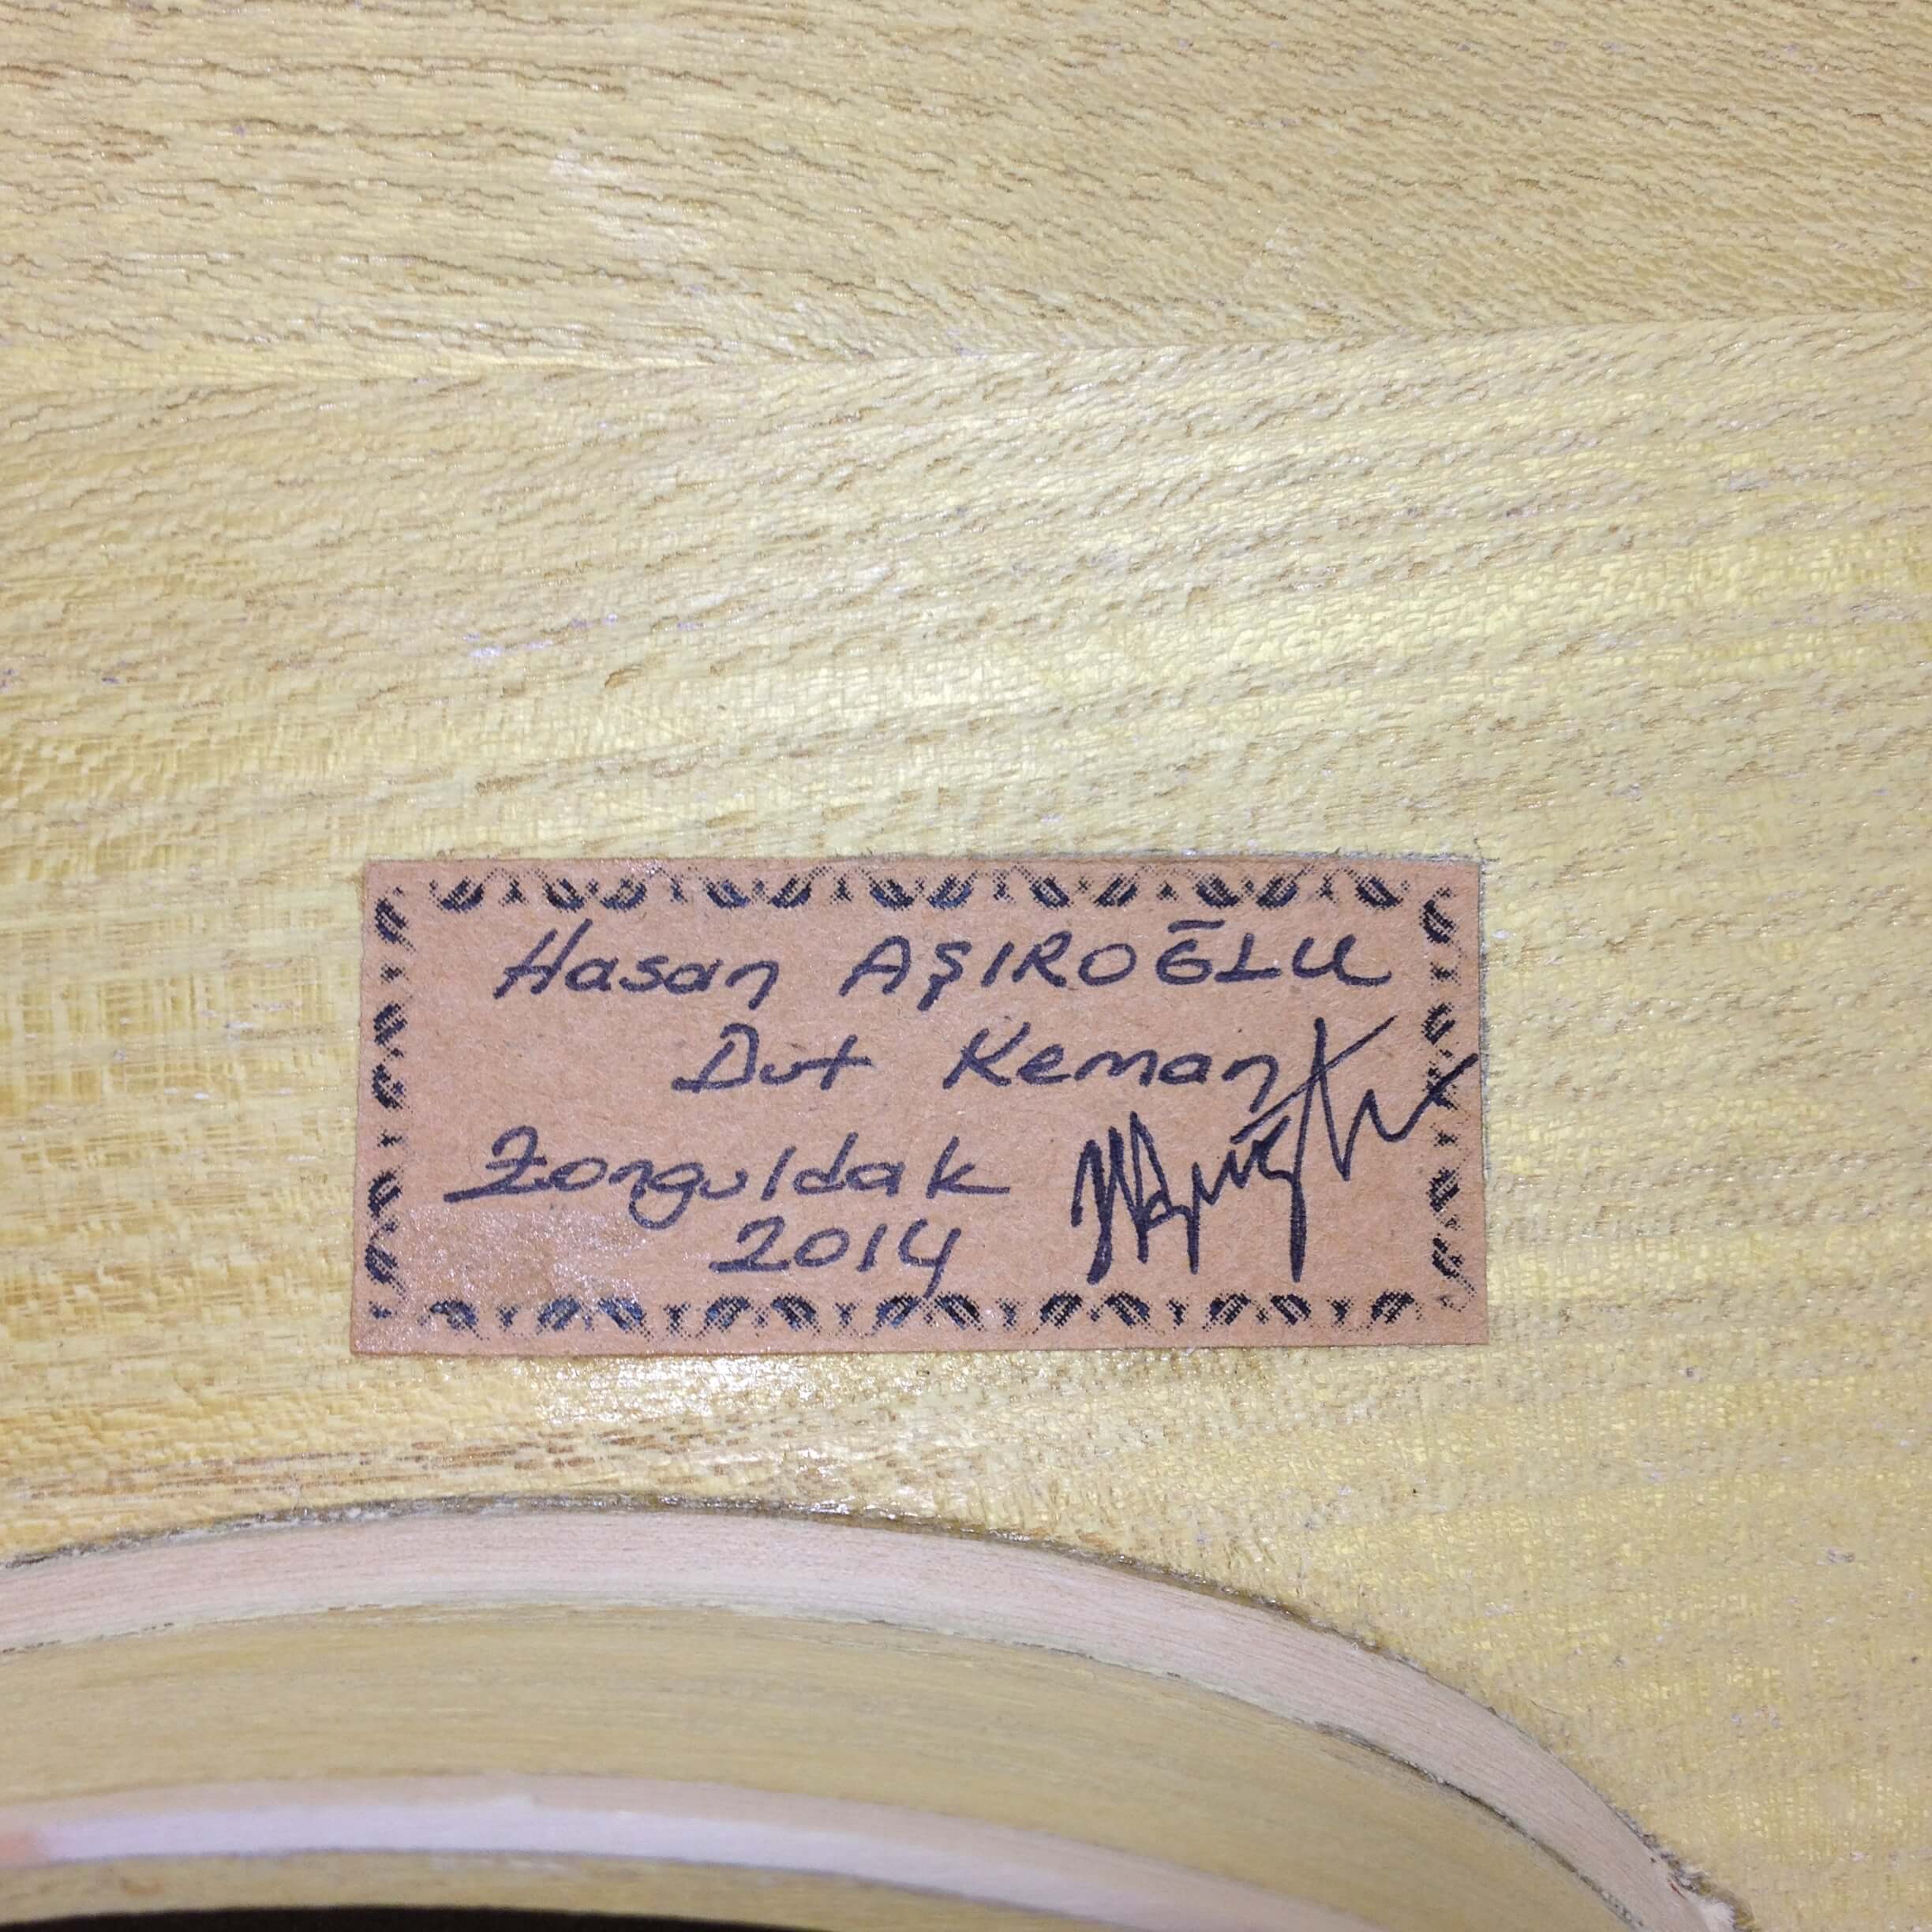 Hasan AŞIROĞLU
Dut Keman
Zonguldak
2014